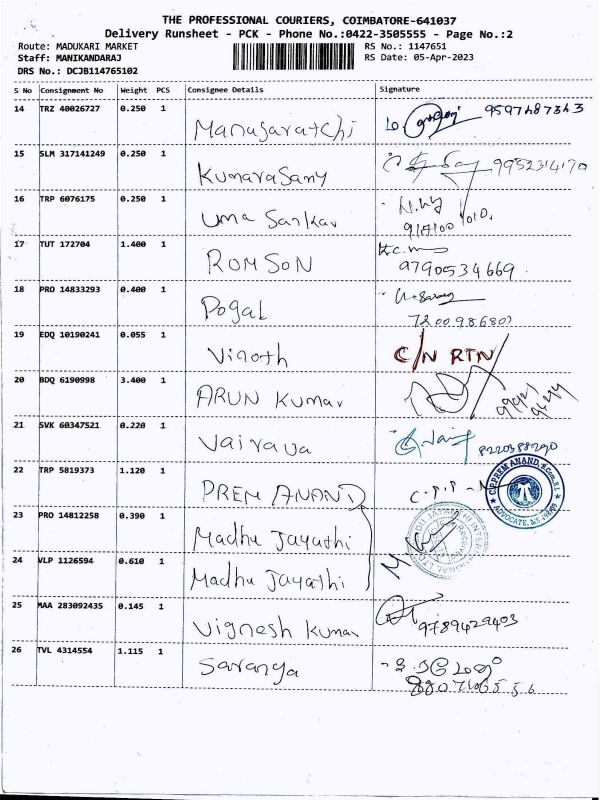 THE PROFESSIONAL COURIERS, COIMBATORE-641037
Delivery Runsheet - PCK - Phone No.:0422-3505555 - Page No.:2
Route: MADUKARI MARKET RS No.: 1147651
Staff: MANIKANDARAJ RS Date: 05-Apr-2023
DRS No.: DCJB114765102
S No Consignment No Weight PCS Consignee Details Signature
14 TRZ 40026727 0.250 1 9597487343
Manusaratchi
15 SLM 317141249 0.250 1
Kumarasamy 9952314170
16 TRP 6076175 0.250 1
Uma Sankar
17 TUT 172704 1.400 1
ROMSON 9790534669
18 PRO 14833293 0.400 1
Pogal 7200986807
19 EDQ 10190241 0.055 1
Vinoth C/N RTN
20 BDQ 6190998 3.400 1
ARUN Kumar
21 SVK 60347521 0.220 1
Vairava 8220388290
22 TRP 5819373 1.120 1
PREM ANAND C.P.P
C.P.PREM ANAND, B.Com.,B.L.
ADVOCATE
23 PRO 14812258 0.390 1
Madhu Jayathi
24 VLP 1126594 0.610 1
Madhu Jayathi
25 MAA 283092435 0.145 1
Vignesh Kumar 9789429403
26 TVL 4314554 1.115 1
Saranya